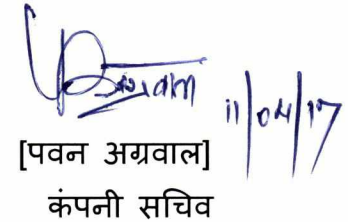 11/04/17
[पवन अग्रवाल]
कंपनी सचिव